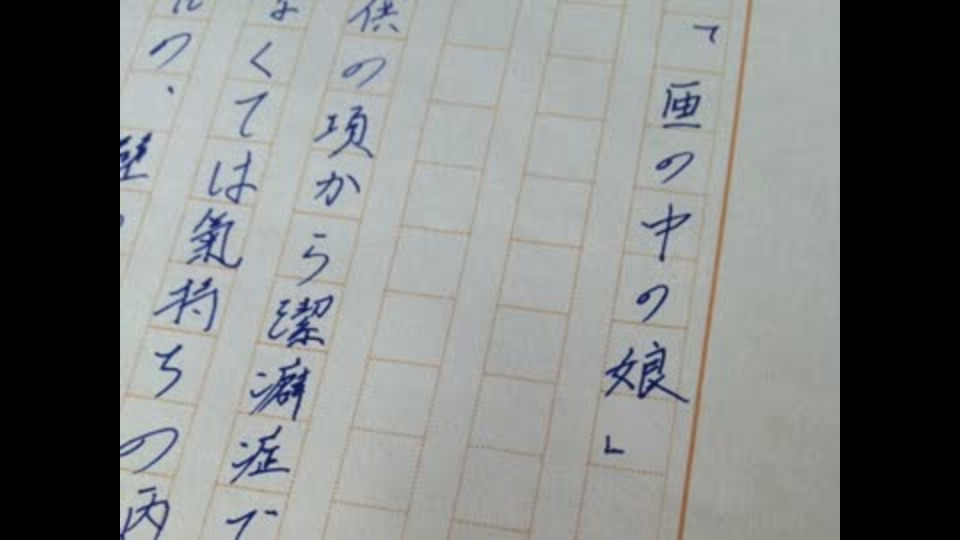 「匣の中の娘」
供の項から潔癖症で
なくては氣持ちの